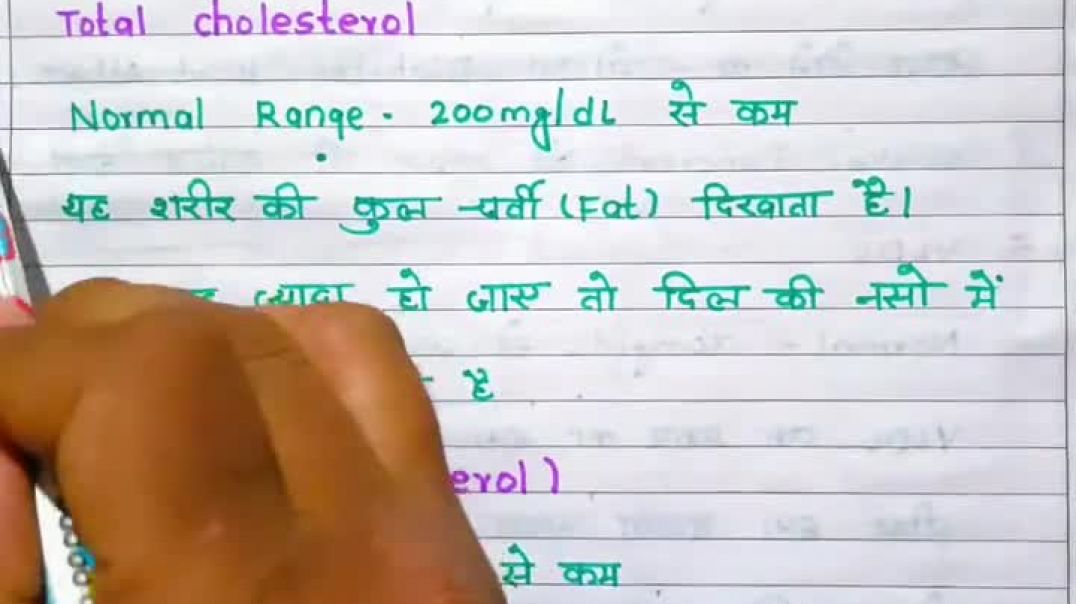 Total cholesterol
Normal Range. 200mg/dL से कम
यह शरीर की कुल चर्वी (Fat) दिखाता है।
ज्यादा हो जाए तो दिल की नसो में
है
erol)
से कम